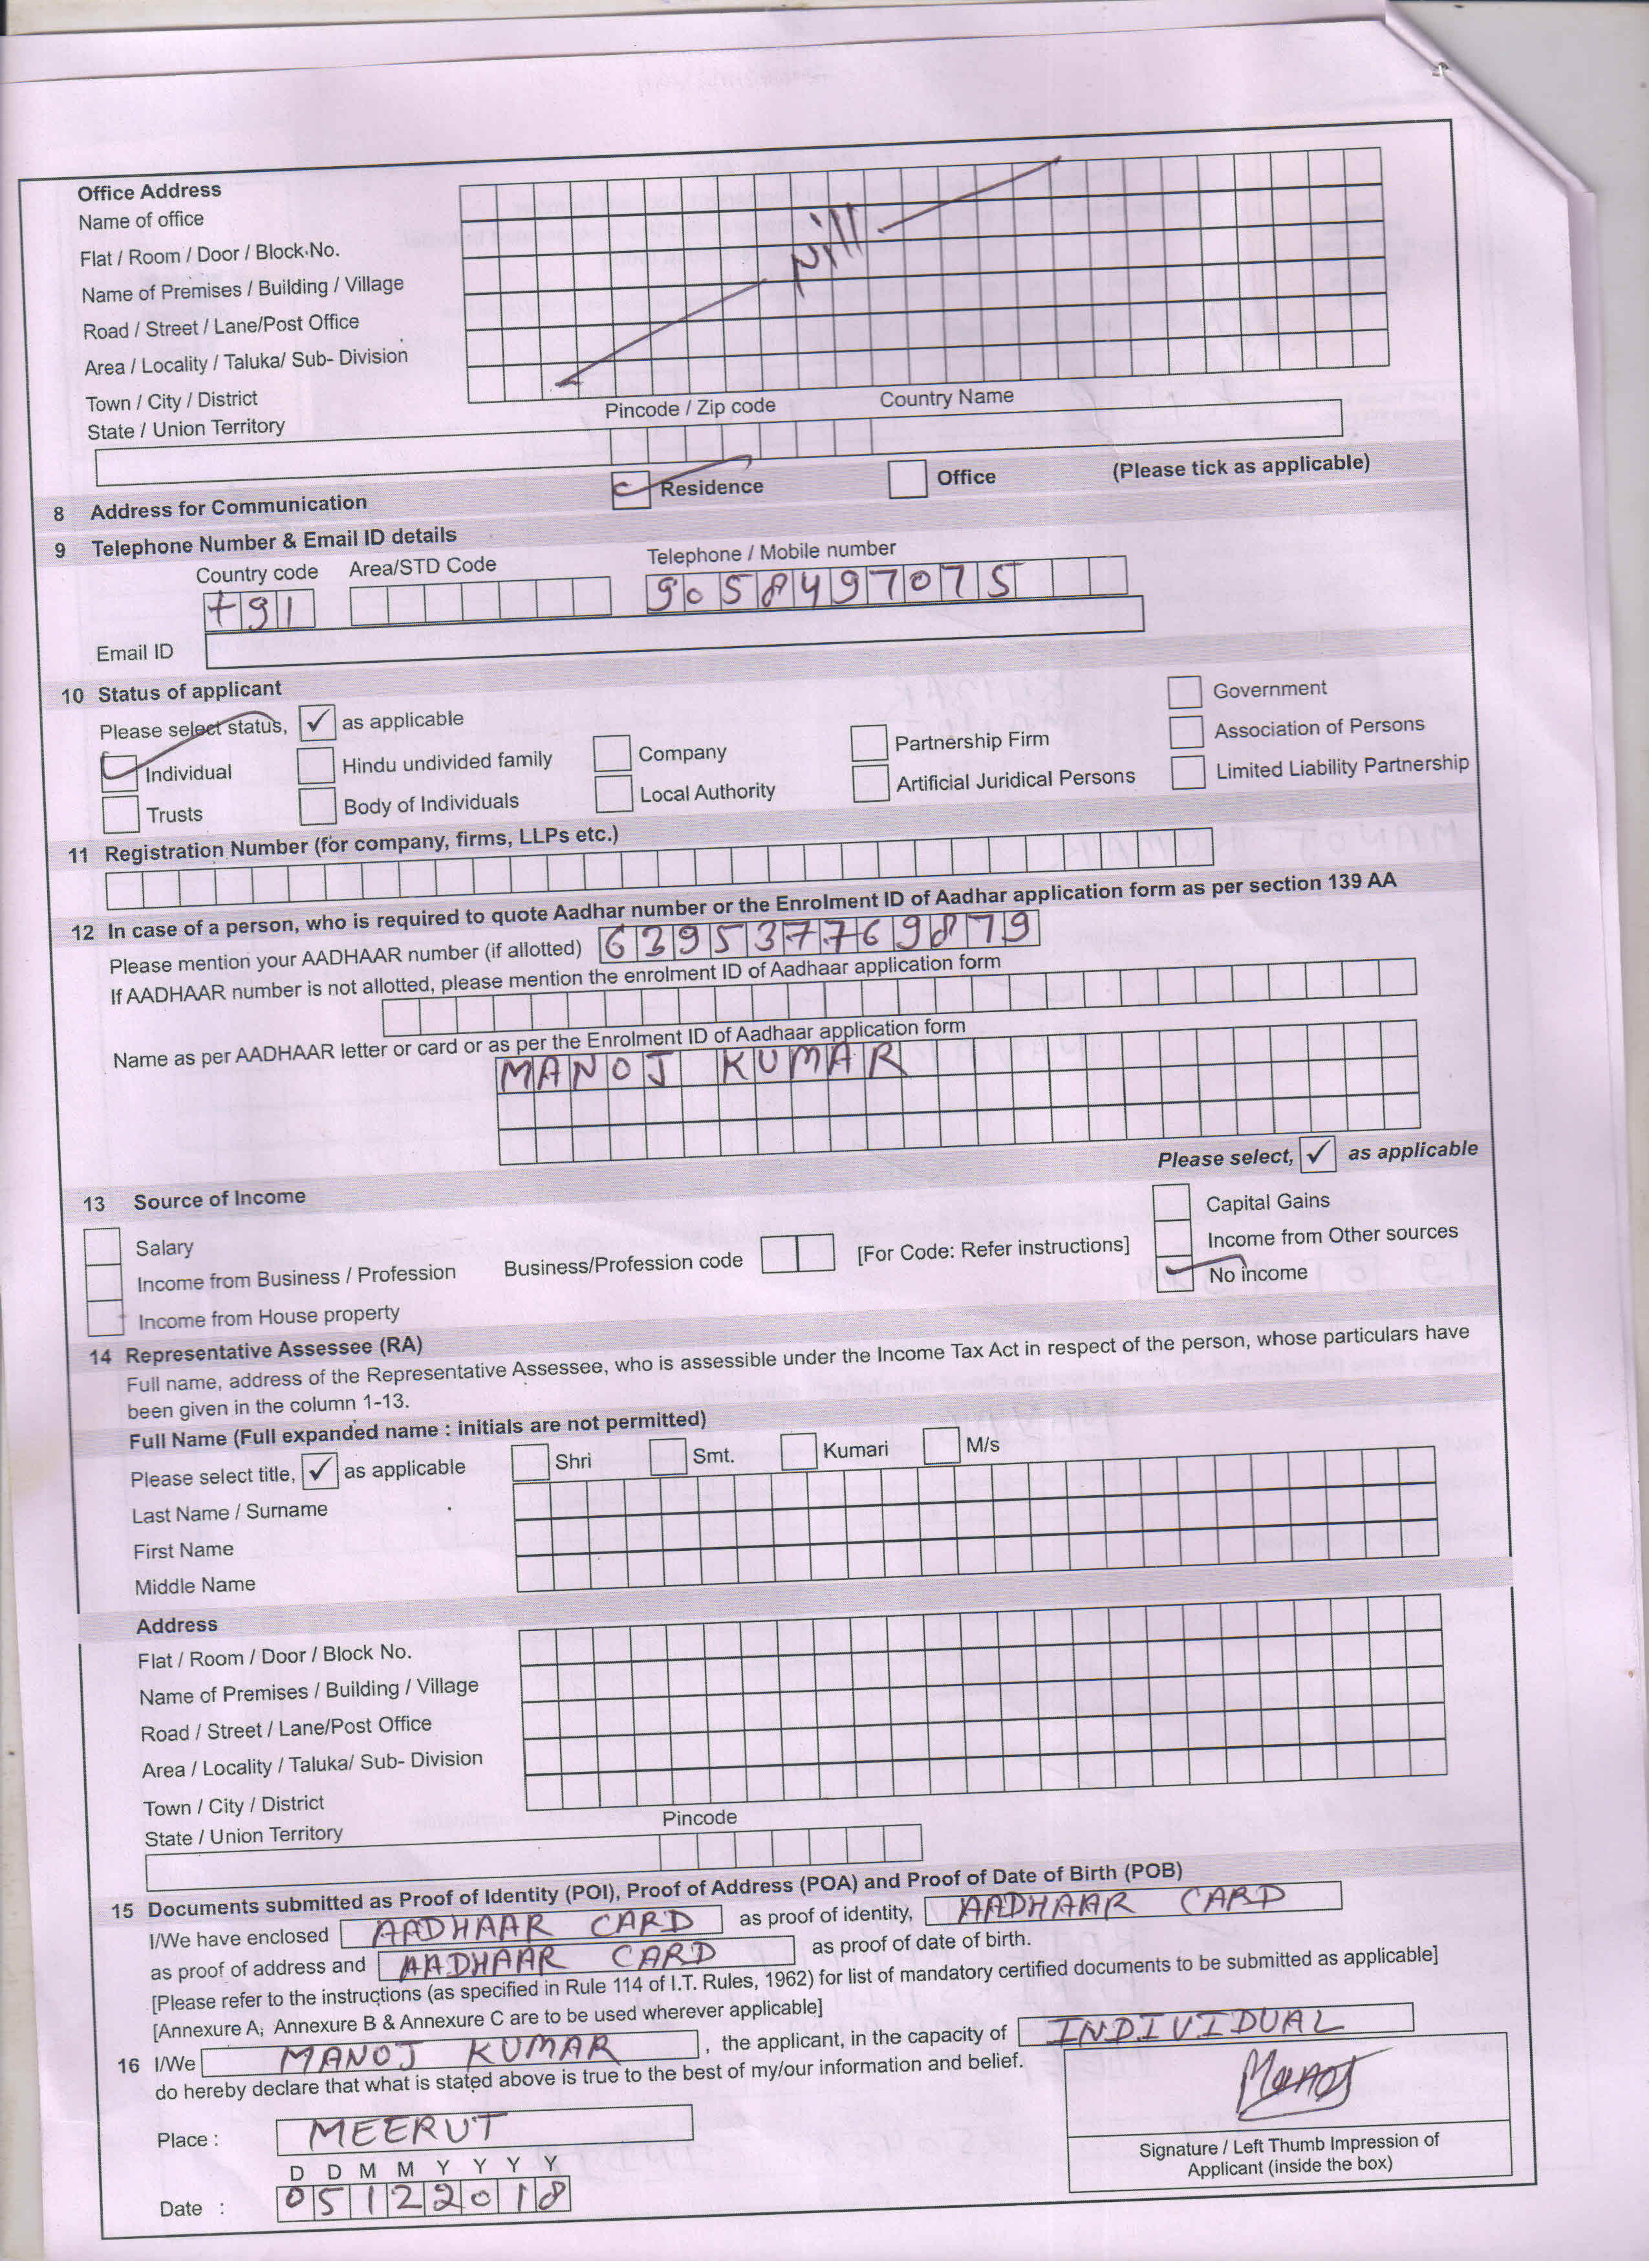 Office Address
Name of office
Flat / Room / Door / Block No.
Name of Premises / Building / Village
Nill
Road / Street / Lane/Post Office
Area / Locality / Taluka/ Sub- Division
Town / City / District
State / Union Territory Pincode / Zip code Country Name
8 Address for Communication Residence Office (Please tick as applicable)
9 Telephone Number & Email ID details
Country code Area/STD Code Telephone / Mobile number
+91 9058497075
Email ID
10 Status of applicant
Please select status, ✓ as applicable Government
Individual Hindu undivided family Company Partnership Firm Association of Persons
Trusts Body of Individuals Local Authority Artificial Juridical Persons Limited Liability Partnership
11 Registration Number (for company, firms, LLPs etc.)
12 In case of a person, who is required to quote Aadhar number or the Enrolment ID of Aadhar application form as per section 139 AA
Please mention your AADHAAR number (if allotted) 639537769879
If AADHAAR number is not allotted, please mention the enrolment ID of Aadhaar application form
Name as per AADHAAR letter or card or as per the Enrolment ID of Aadhaar application form
MANOJ KUMAR
Please select, ✓ as applicable
13 Source of Income
Salary Capital Gains
Income from Business / Profession Business/Profession code [For Code: Refer instructions] Income from Other sources
Income from House property No income
14 Representative Assessee (RA)
Full name, address of the Representative Assessee, who is assessible under the Income Tax Act in respect of the person, whose particulars have
been given in the column 1-13.
Full Name (Full expanded name : initials are not permitted)
Please select title, ✓ as applicable Shri Smt. Kumari M/s
Last Name / Surname
First Name
Middle Name
Address
Flat / Room / Door / Block No.
Name of Premises / Building / Village
Road / Street / Lane/Post Office
Area / Locality / Taluka/ Sub- Division
Town / City / District
State / Union Territory Pincode
15 Documents submitted as Proof of Identity (POI), Proof of Address (POA) and Proof of Date of Birth (POB)
I/We have enclosed AADHAAR CARD as proof of identity, AADHAAR CARD
as proof of address and AADHAAR CARD as proof of date of birth.
[Please refer to the instructions (as specified in Rule 114 of I.T. Rules, 1962) for list of mandatory certified documents to be submitted as applicable]
[Annexure A, Annexure B & Annexure C are to be used wherever applicable]
16 I/We MANOJ KUMAR , the applicant, in the capacity of INDIVIDUAL
do hereby declare that what is stated above is true to the best of my/our information and belief.
Manoj
Place : MEERUT
Signature / Left Thumb Impression of
Applicant (inside the box)
D D M M Y Y Y Y
Date : 05122018